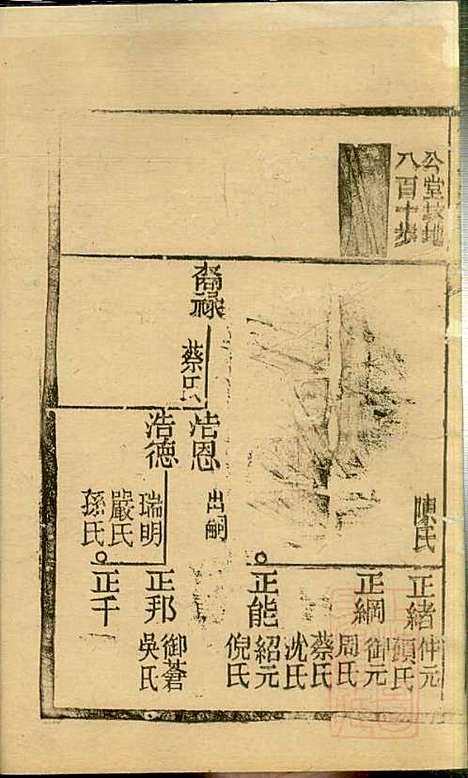 公堂基地
八百十步
陳氏
裔祿
蔡氏
浩恩
出嗣
浩德
瑞明
嚴氏
孫氏
正緒
仲元
顧氏
正綱
御元
周氏
蔡氏
沈氏
正能
紹元
倪氏
正邦
御蒼
吳氏
正千